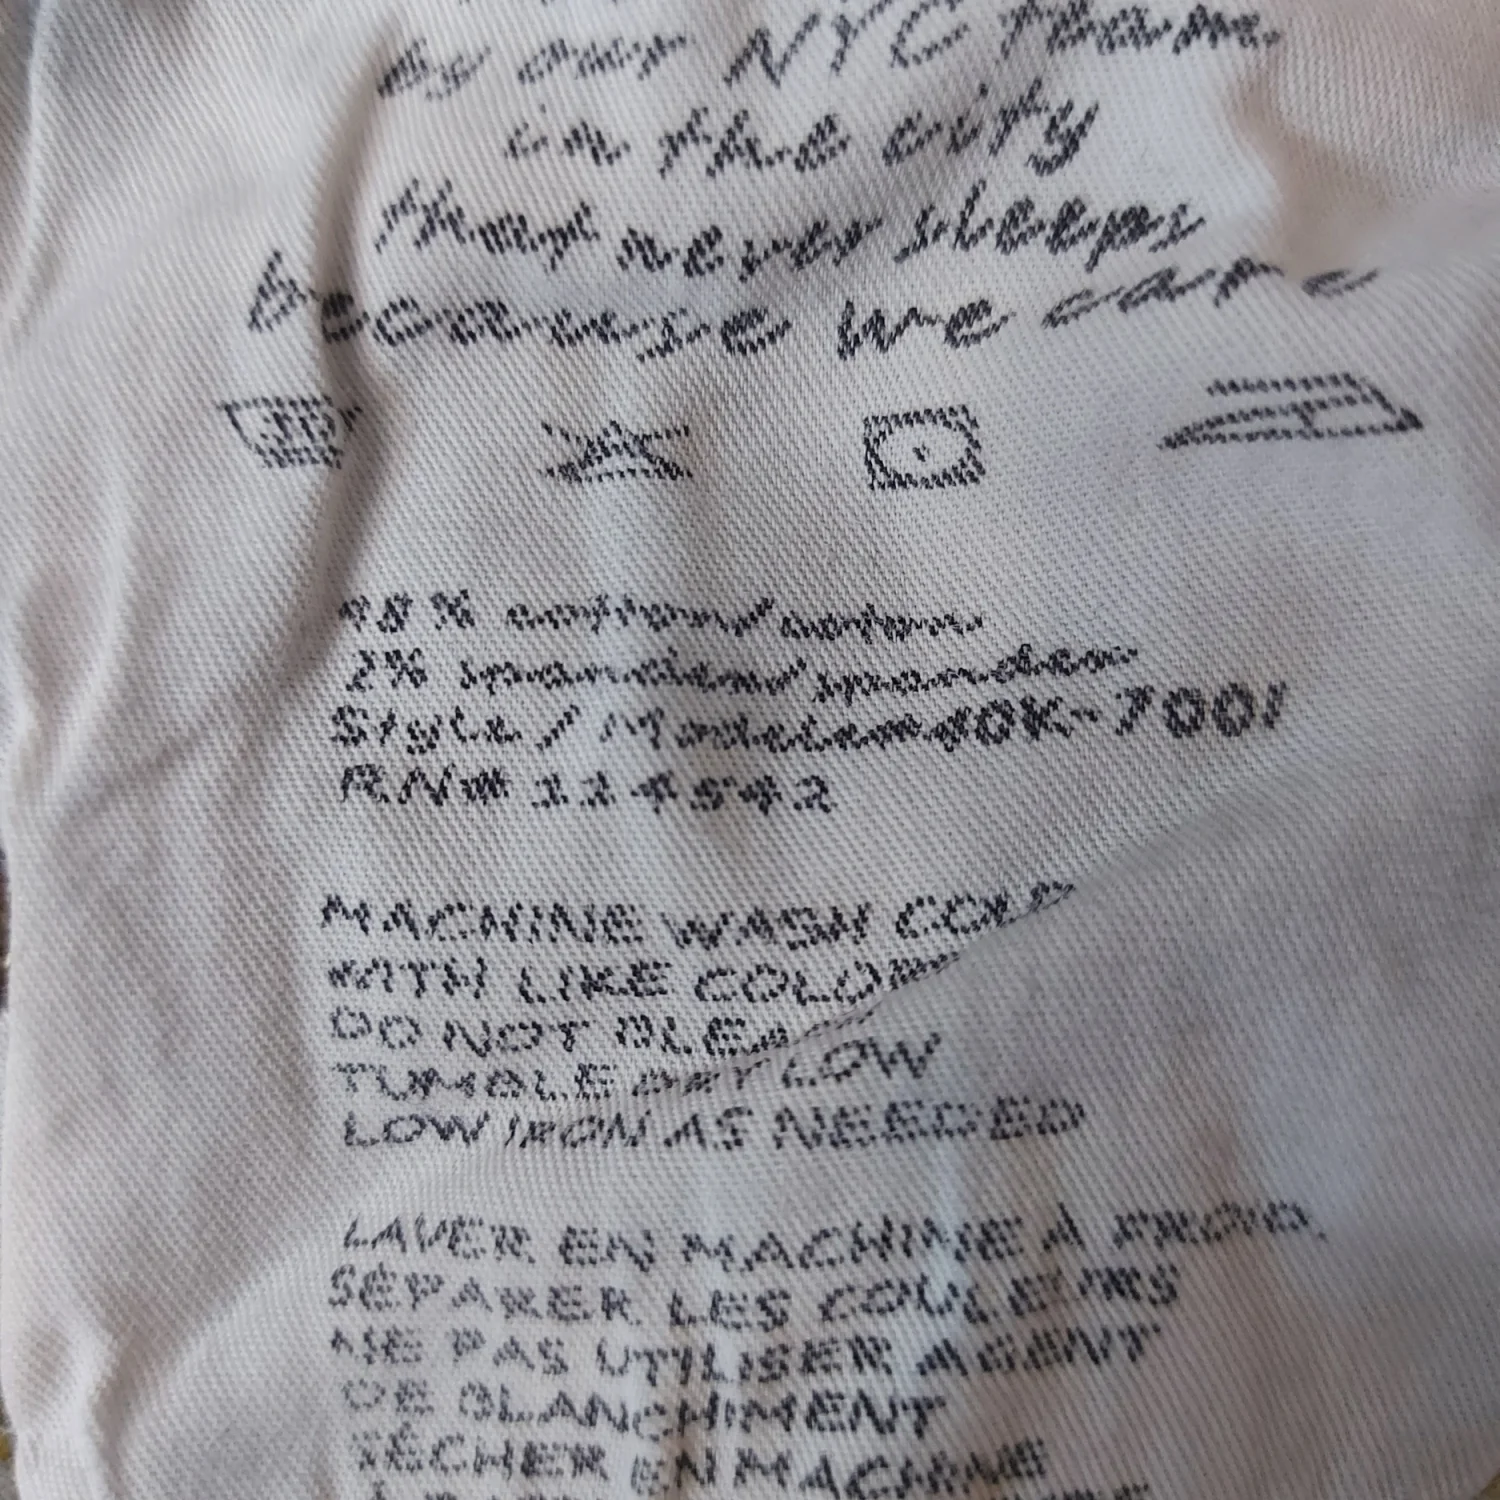 by our NYC team
in the city
that never sleeps
because we care
98% cotton/coton
2% spandex/spandex
RN# 124542
MACHINE WASH COLD
WITH LIKE COLORS
DO NOT BLEACH
TUMBLE DRY LOW
LOW IRON AS NEEDED
LAVER EN MACHINE À FROID.
SÉPARER LES COULEURS
NE PAS UTILISER AGENT
DE BLANCHIMENT
SÉCHER EN MACHINE